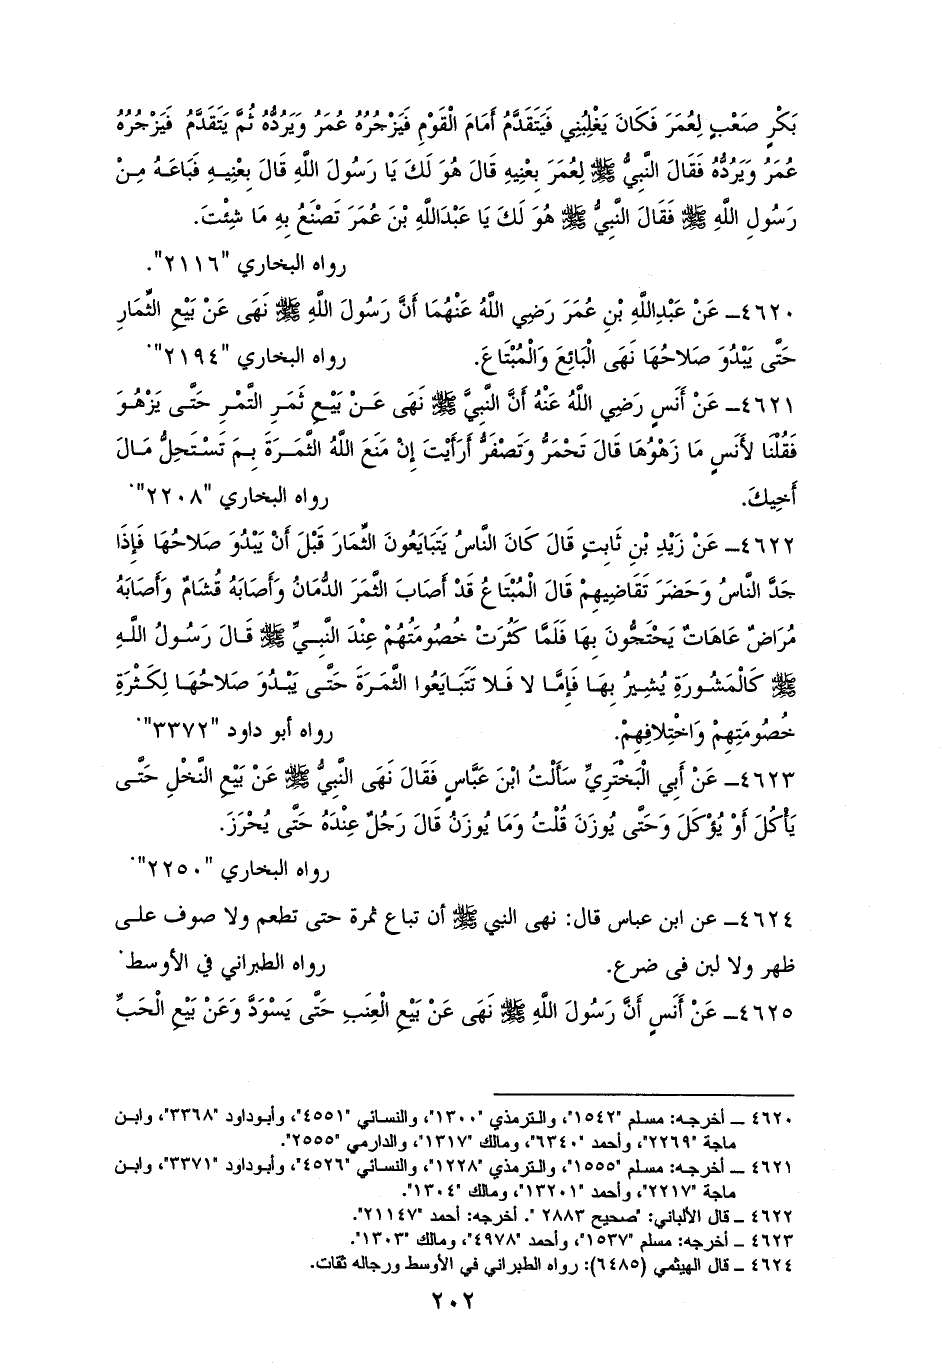 بَكْرٍ صَعْبٍ لِعُمَرَ فَكَانَ يَغْلِبُنِي فَيَتَقَدَّمُ أَمَامَ الْقَوْمِ فَيَزْجُرُهُ عُمَرُ وَيَرُدُّهُ ثُمَّ يَتَقَدَّمُ فَيَزْجُرُهُ
عُمَرُ وَيَرُدُّهُ فَقَالَ النَّبِيُّ ﷺ لِعُمَرَ بِعْنِيهِ قَالَ هُوَ لَكَ يَا رَسُولَ اللَّهِ قَالَ بِعْنِيهِ فَبَاعَهُ مِنْ
رَسُولِ اللَّهِ ﷺ فَقَالَ النَّبِيُّ ﷺ هُوَ لَكَ يَا عَبْدَاللَّهِ بْنَ عُمَرَ تَصْنَعُ بِهِ مَا شِئْتَ.
رواه البخاري "٢١١٦".
٤٦٢٠ـ عَنْ عَبْدِاللَّهِ بْنِ عُمَرَ رَضِي اللَّهُ عَنْهُمَا أَنَّ رَسُولَ اللَّهِ ﷺ نَهَى عَنْ بَيْعِ الثِّمَارِ
حَتَّى يَبْدُوَ صَلَاحُهَا نَهَى الْبَائِعَ وَالْمُبْتَاعَ. رواه البخاري "٢١٩٤".
٤٦٢١ـ عَنْ أَنَسٍ رَضِي اللَّهُ عَنْهُ أَنَّ النَّبِيَّ ﷺ نَهَى عَنْ بَيْعِ ثَمَرِ التَّمْرِ حَتَّى يَزْهُوَ
فَقُلْنَا لأَنَسٍ مَا زَهْوُهَا قَالَ تَحْمَرُّ وَتَصْفَرُّ أَرَأَيْتَ إِنْ مَنَعَ اللَّهُ الثَّمَرَةَ بِمَ تَسْتَحِلُّ مَالَ
أَخِيكَ. رواه البخاري "٢٢٠٨".
٤٦٢٢ـ عَنْ زَيْدِ بْنِ ثَابِتٍ قَالَ كَانَ النَّاسُ يَتَبَايَعُونَ الثِّمَارَ قَبْلَ أَنْ يَبْدُوَ صَلَاحُهَا فَإِذَا
جَدَّ النَّاسُ وَحَضَرَ تَقَاضِيهِمْ قَالَ الْمُبْتَاعُ قَدْ أَصَابَ الثَّمَرَ الدُّمَانُ وَأَصَابَهُ قُشَامٌ وَأَصَابَهُ
مُرَاضٌ عَاهَاتٌ يَحْتَجُّونَ بِهَا فَلَمَّا كَثُرَتْ خُصُومَتُهُمْ عِنْدَ النَّبِيِّ ﷺ قَالَ رَسُولُ اللَّهِ
ﷺ كَالْمَشُورَةِ يُشِيرُ بِهَا فَإِمَّا لا فَلا تَتَبَايَعُوا الثَّمَرَةَ حَتَّى يَبْدُوَ صَلَاحُهَا لِكَثْرَةِ
خُصُومَتِهِمْ وَاخْتِلافِهِمْ. رواه أبو داود "٣٣٧٢".
٤٦٢٣ـ عَنْ أَبِي الْبَخْتَرِيِّ سَأَلْتُ ابْنَ عَبَّاسٍ فَقَالَ نَهَى النَّبِيُّ ﷺ عَنْ بَيْعِ النَّخْلِ حَتَّى
يَأْكُلَ أَوْ يُؤْكَلَ وَحَتَّى يُوزَنَ قُلْتُ وَمَا يُوزَنُ قَالَ رَجُلٌ عِنْدَهُ حَتَّى يُحْرَزَ.
رواه البخاري "٢٢٥٠".
٤٦٢٤ـ عن ابن عباس قال: نهى النبي ﷺ أن تباع ثمرة حتى تطعم ولا صوف على
ظهر ولا لبن فى ضرع. رواه الطبراني في الأوسط.
٤٦٢٥ـ عَنْ أَنَسٍ أَنَّ رَسُولَ اللَّهِ ﷺ نَهَى عَنْ بَيْعِ الْعِنَبِ حَتَّى يَسْوَدَّ وَعَنْ بَيْعِ الْحَبِّ
٤٦٢٠ ـ أخرجه: مسلم "١٥٤٢"، والترمذي "١٣٠٠"، والنسائي "٤٥٥١"، وأبوداود "٣٣٦٨"، وابن
ماجة "٢٢٦٩"، وأحمد "٦٣٤٠"، ومالك "١٣١٧"، والدارمي "٢٥٥٥".
٤٦٢١ ـ أخرجه: مسلم "١٥٥٥"، والترمذي "١٢٢٨"، والنسائي "٤٥٢٦"، وأبوداود "٣٣٧١"، وابن
ماجة "٢٢١٧"، وأحمد "١٣٢٠١"، ومالك "١٣٠٤".
٤٦٢٢ ـ قال الألباني: "صحيح ٢٨٨٣ ". أخرجه: أحمد "٢١١٤٧".
٤٦٢٣ ـ أخرجه: مسلم "١٥٣٧"، وأحمد "٤٩٧٨"، ومالك "١٣٠٣".
٤٦٢٤ ـ قال الهيثمي (٦٤٨٥): رواه الطبراني في الأوسط ورجاله ثقات.
٢٠٢